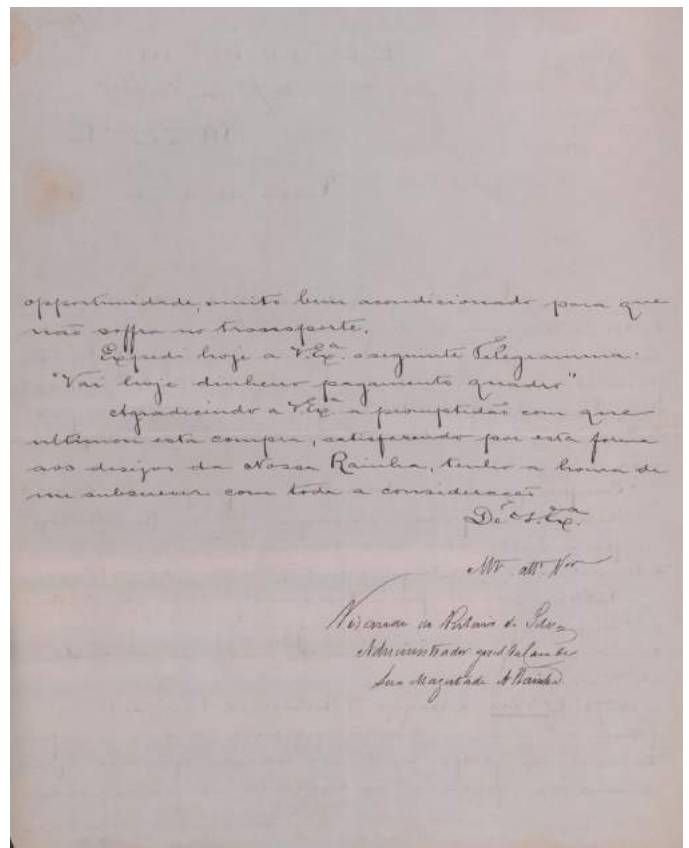 opportunidade, muito bem acondicionado para que
não soffra no transporte.
Expedi hoje a V.Exª. o seguinte Telegramma:
"Vai hoje dinheiro pagamento quadro"
Agradecindo a V.Exª a promptidão com que
ultimou esta compra, satisfazendo por esta forma
aos desejos da Nossa Rainha, tenho a honra de
me subscrever com toda a consideração
De V.Exª.
Mt. attº. Vor.
Visconde de
Administrador geral da
Sua Magestade A Rainha